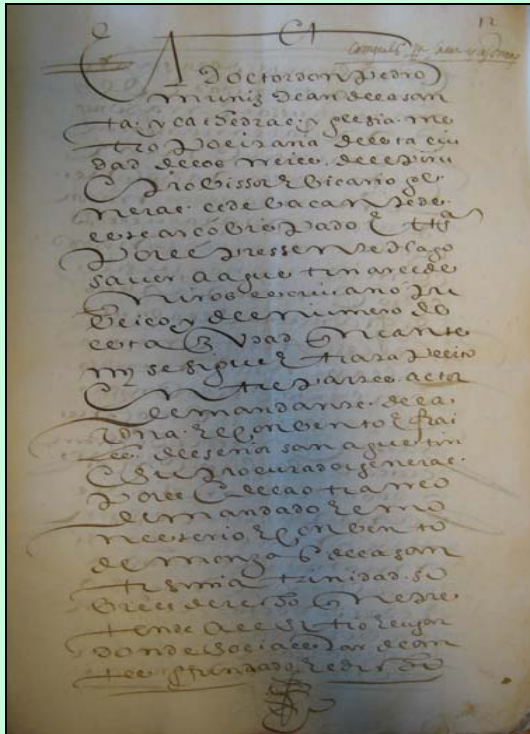 12
El Doctor don pedro
muniz dean de la san
ta yglesia me
tropolitana de esta ciu
dad de los rreies del piru
probissor e bicario ge
neral sede bacante de
este arcobispado etta
por el presente hago
saver a agustin
escrivano pu
blico y del numero de
esta ciudad que ante
my se sigue e trata pleito
entre partes actor
demandante de la
una el convento e frai
les de señor san agustin
e su procurador general
por el e de la otra rreo
demandado el mo
nesterio e convento
de monxas de la san
tisima trinidad so
bre el derecho que pre
tende a el sitio e lugar
donde solia estar
fundado el dicho